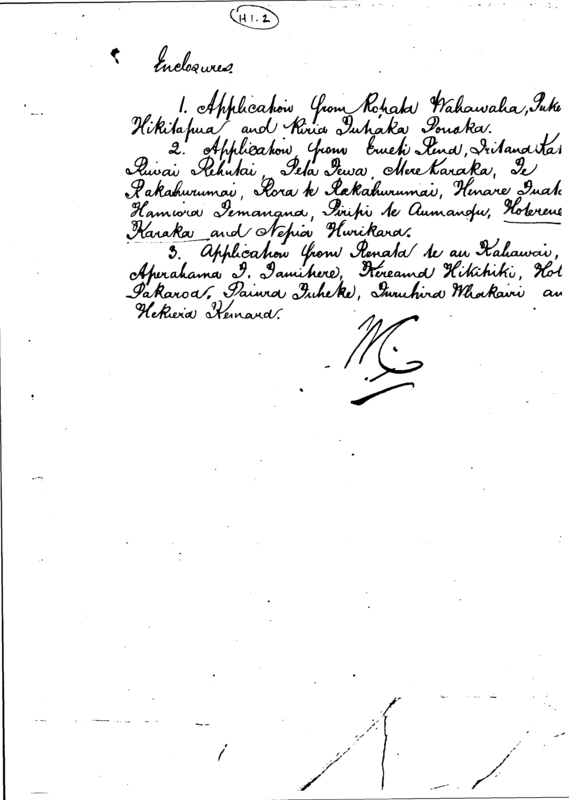 H1.2
Enclosures.
1. Application from Ropata Wahawaha, Puke
Hikitapua and Kiria Tuhaka Ponoka.
2. Application from Erueti Rena, Iritana Kat
Riwai Rehutai, Peta Tewa, Mere Karaka, Te
Rakahurumai, Rora te Rakahurumai, Henare Tuat
Hamiora Temangna, Piripi te Aumangu, Hoterene
Karaka and Nepia Hurikara.
3. Application from Renata te au Kahawai,
Aperahama T. Tamihere, Kereama Hikitiki, Hot
Pakaroa, Paiura Tuheke, Turuhira Whakairi an
Hekiera Kemara.